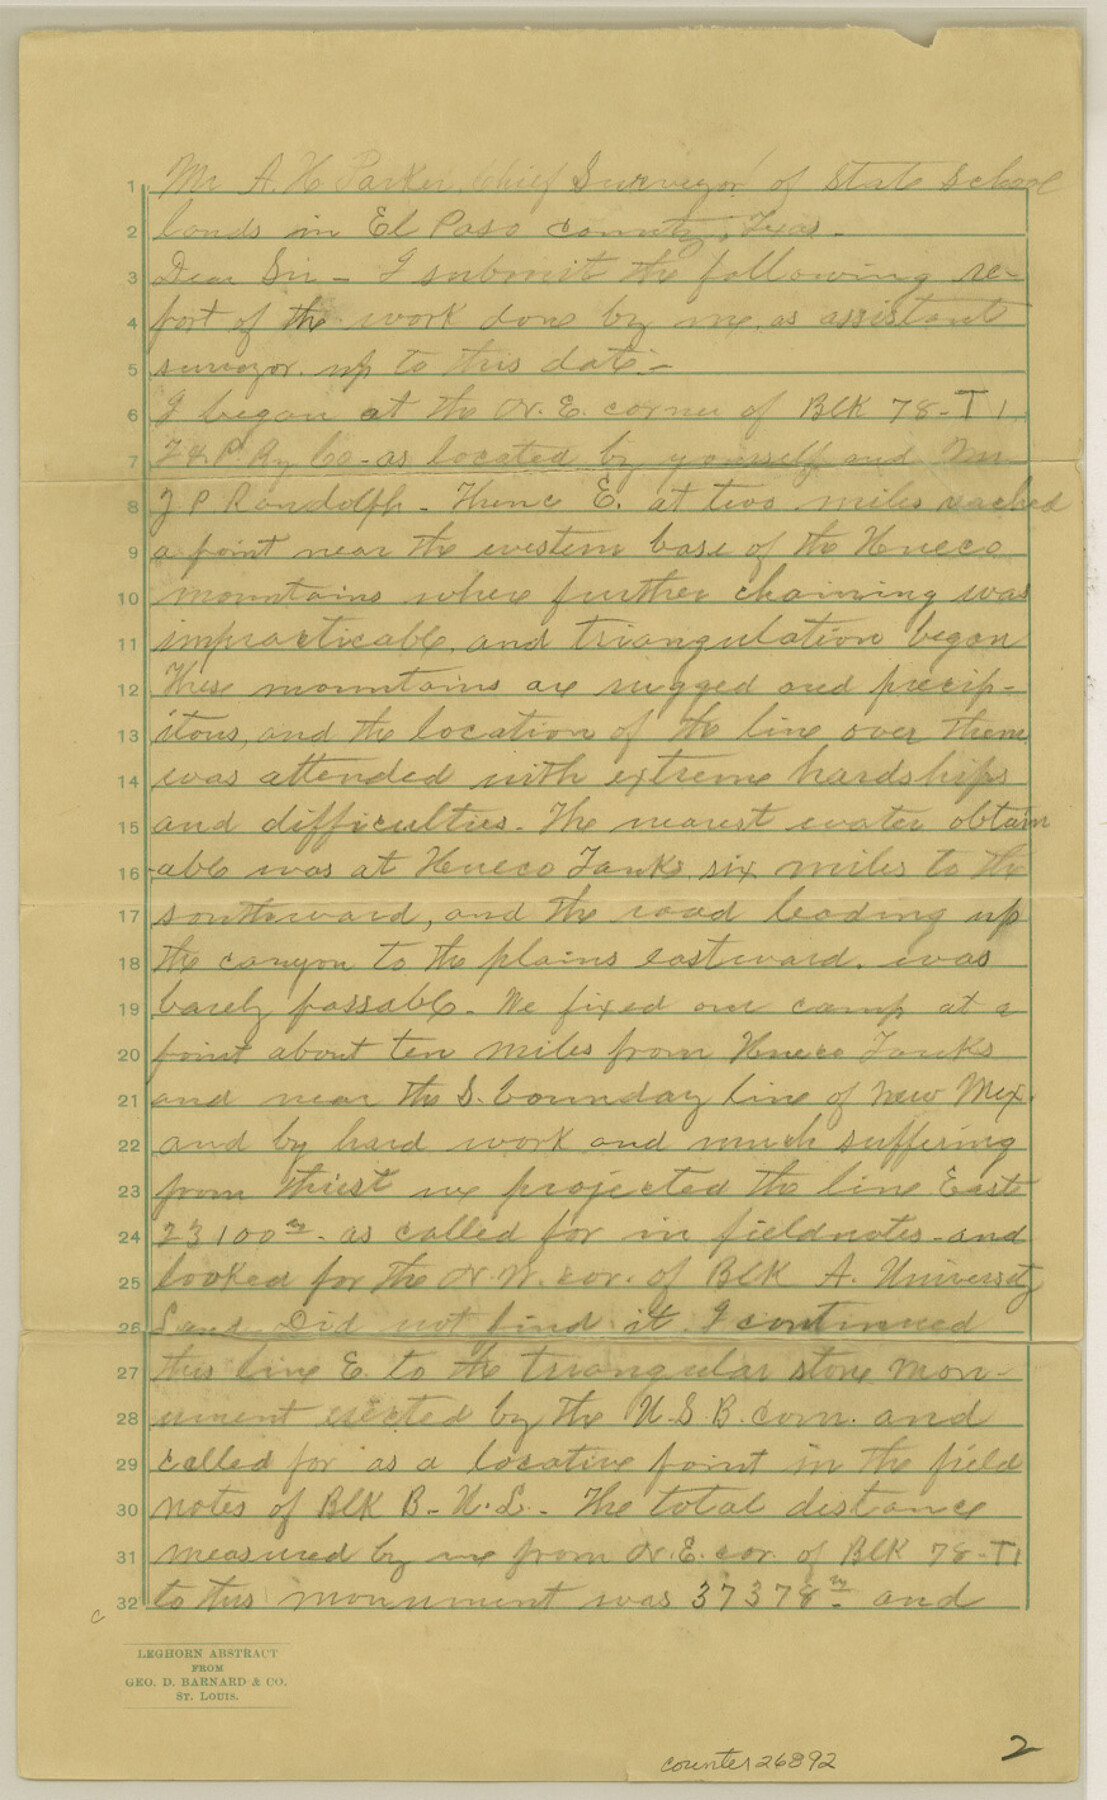 1 Mr A. H Parker, chief Surveyor of State School
2 lands in El Paso county, Texas -
3 Dear Sir - I submit the following re-
4 port of the work done by me as assistant
5 surveyor. up to this date -
6 I began at the N. E. corner of Blk 78 - T 1
7 T & P. Ry Co - as located by yourself and Mr
8 J P Randolph - Thence E. at two miles reached
9 a point near the western base of the Hueco
10 mountains where further chaining was
11 impracticable, and triangulation began
12 These mountains are rugged and precip-
13 itous, and the location of the line over them
14 was attended with extreme hardships
15 and difficulties. The nearest water obtain
16 able was at Hueco Tanks six miles to the
17 southward, and the road leading up
18 the canyon to the plains eastward. was
19 barely passable. We fixed our camp at a
20 point about ten miles from Hueco Tanks
21 and near the S. boundary line of New Mex.
22 and by hard work and much suffering
23 from thirst we projected the line East
24 23100 vs - as called for in fieldnotes - and
25 looked for the N. W. cor. of Blk A. University
26 Land Did not find it. I continued
27 this line E. to the triangular stone mon-
28 ument erected by the U. S. B. com. and
29 called for as a locative point in the field
30 notes of Blk B - U. L. - The total distance
31 measured by me from N. E. cor. of Blk 78 - T 1
32 to this monument was 37378 vs - and
c
LEGHORN ABSTRACT
FROM
GEO. D. BARNARD & CO.
ST. LOUIS.
2
counter 26892